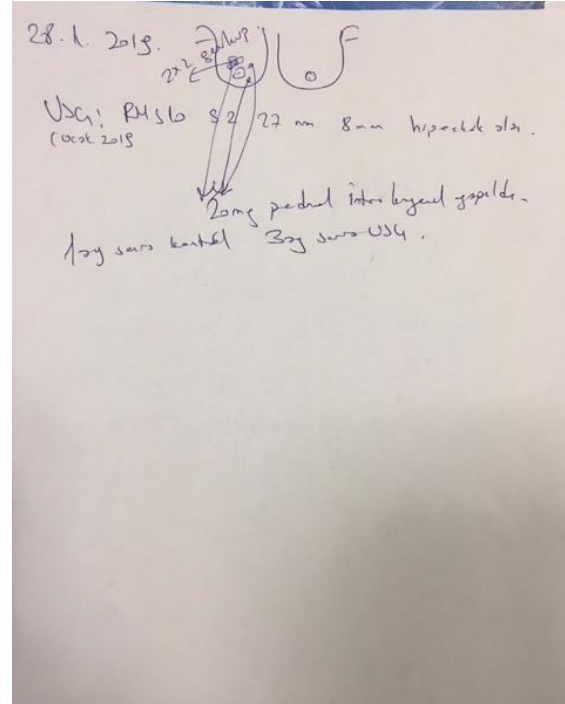 28.1.2019.
2x2
USG: RMSlo 82 27 mm 8mm hipoekoik alan.
(Ocak 2019
20mg pednol intralezyonel yapıldı.
1 ay sonra kontrol 3 ay sonra USG.